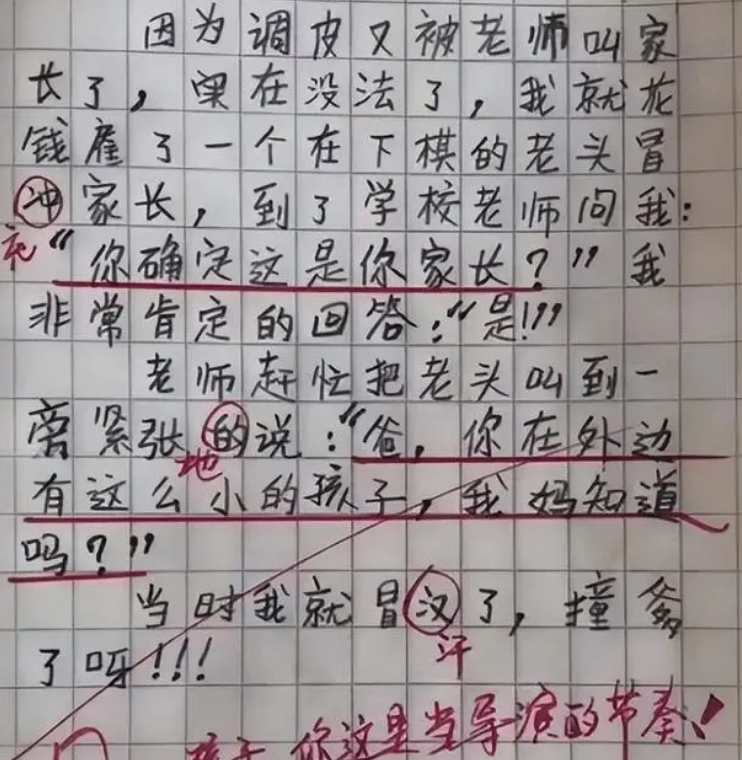 因为调皮又被老师叫家
长了，实在没法了，我就花
钱雇了一个在下棋的老头冒
冲家长，到了学校老师问我：
充
“你确定这是你家长？”我
非常肯定的回答：“是！”
老师赶忙把老头叫到一
旁紧张的说：“爸，你在外边
地
有这么小的孩子，我妈知道
吗？”
当时我就冒汉了，撞爹
汗
了呀！！！
孩子，你这是当导演的节奏！